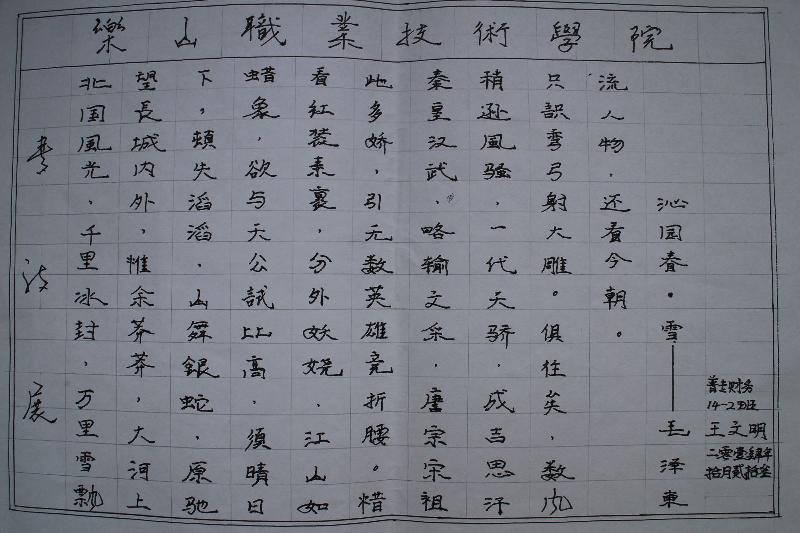 樂山職業技術學院
書法展
北国風光，千里冰封，万里雪飄
望長城内外，惟余莽莽，大河上
下，頓失滔滔，山舞銀蛇，原馳
蜡象，欲与天公試比高，須晴日
看紅裝素裹，分外妖娆，江山如
此多娇，引无数英雄竞折腰。惜
秦皇汉武，略输文采，唐宗宋祖
稍逊風骚，一代天骄，成吉思汗
只識彎弓射大雕。俱往矣，数风
流人物，还看今朝。
沁园春。雪——毛泽東
14-2班
王文明
二零壹肆年
拾月贰拾